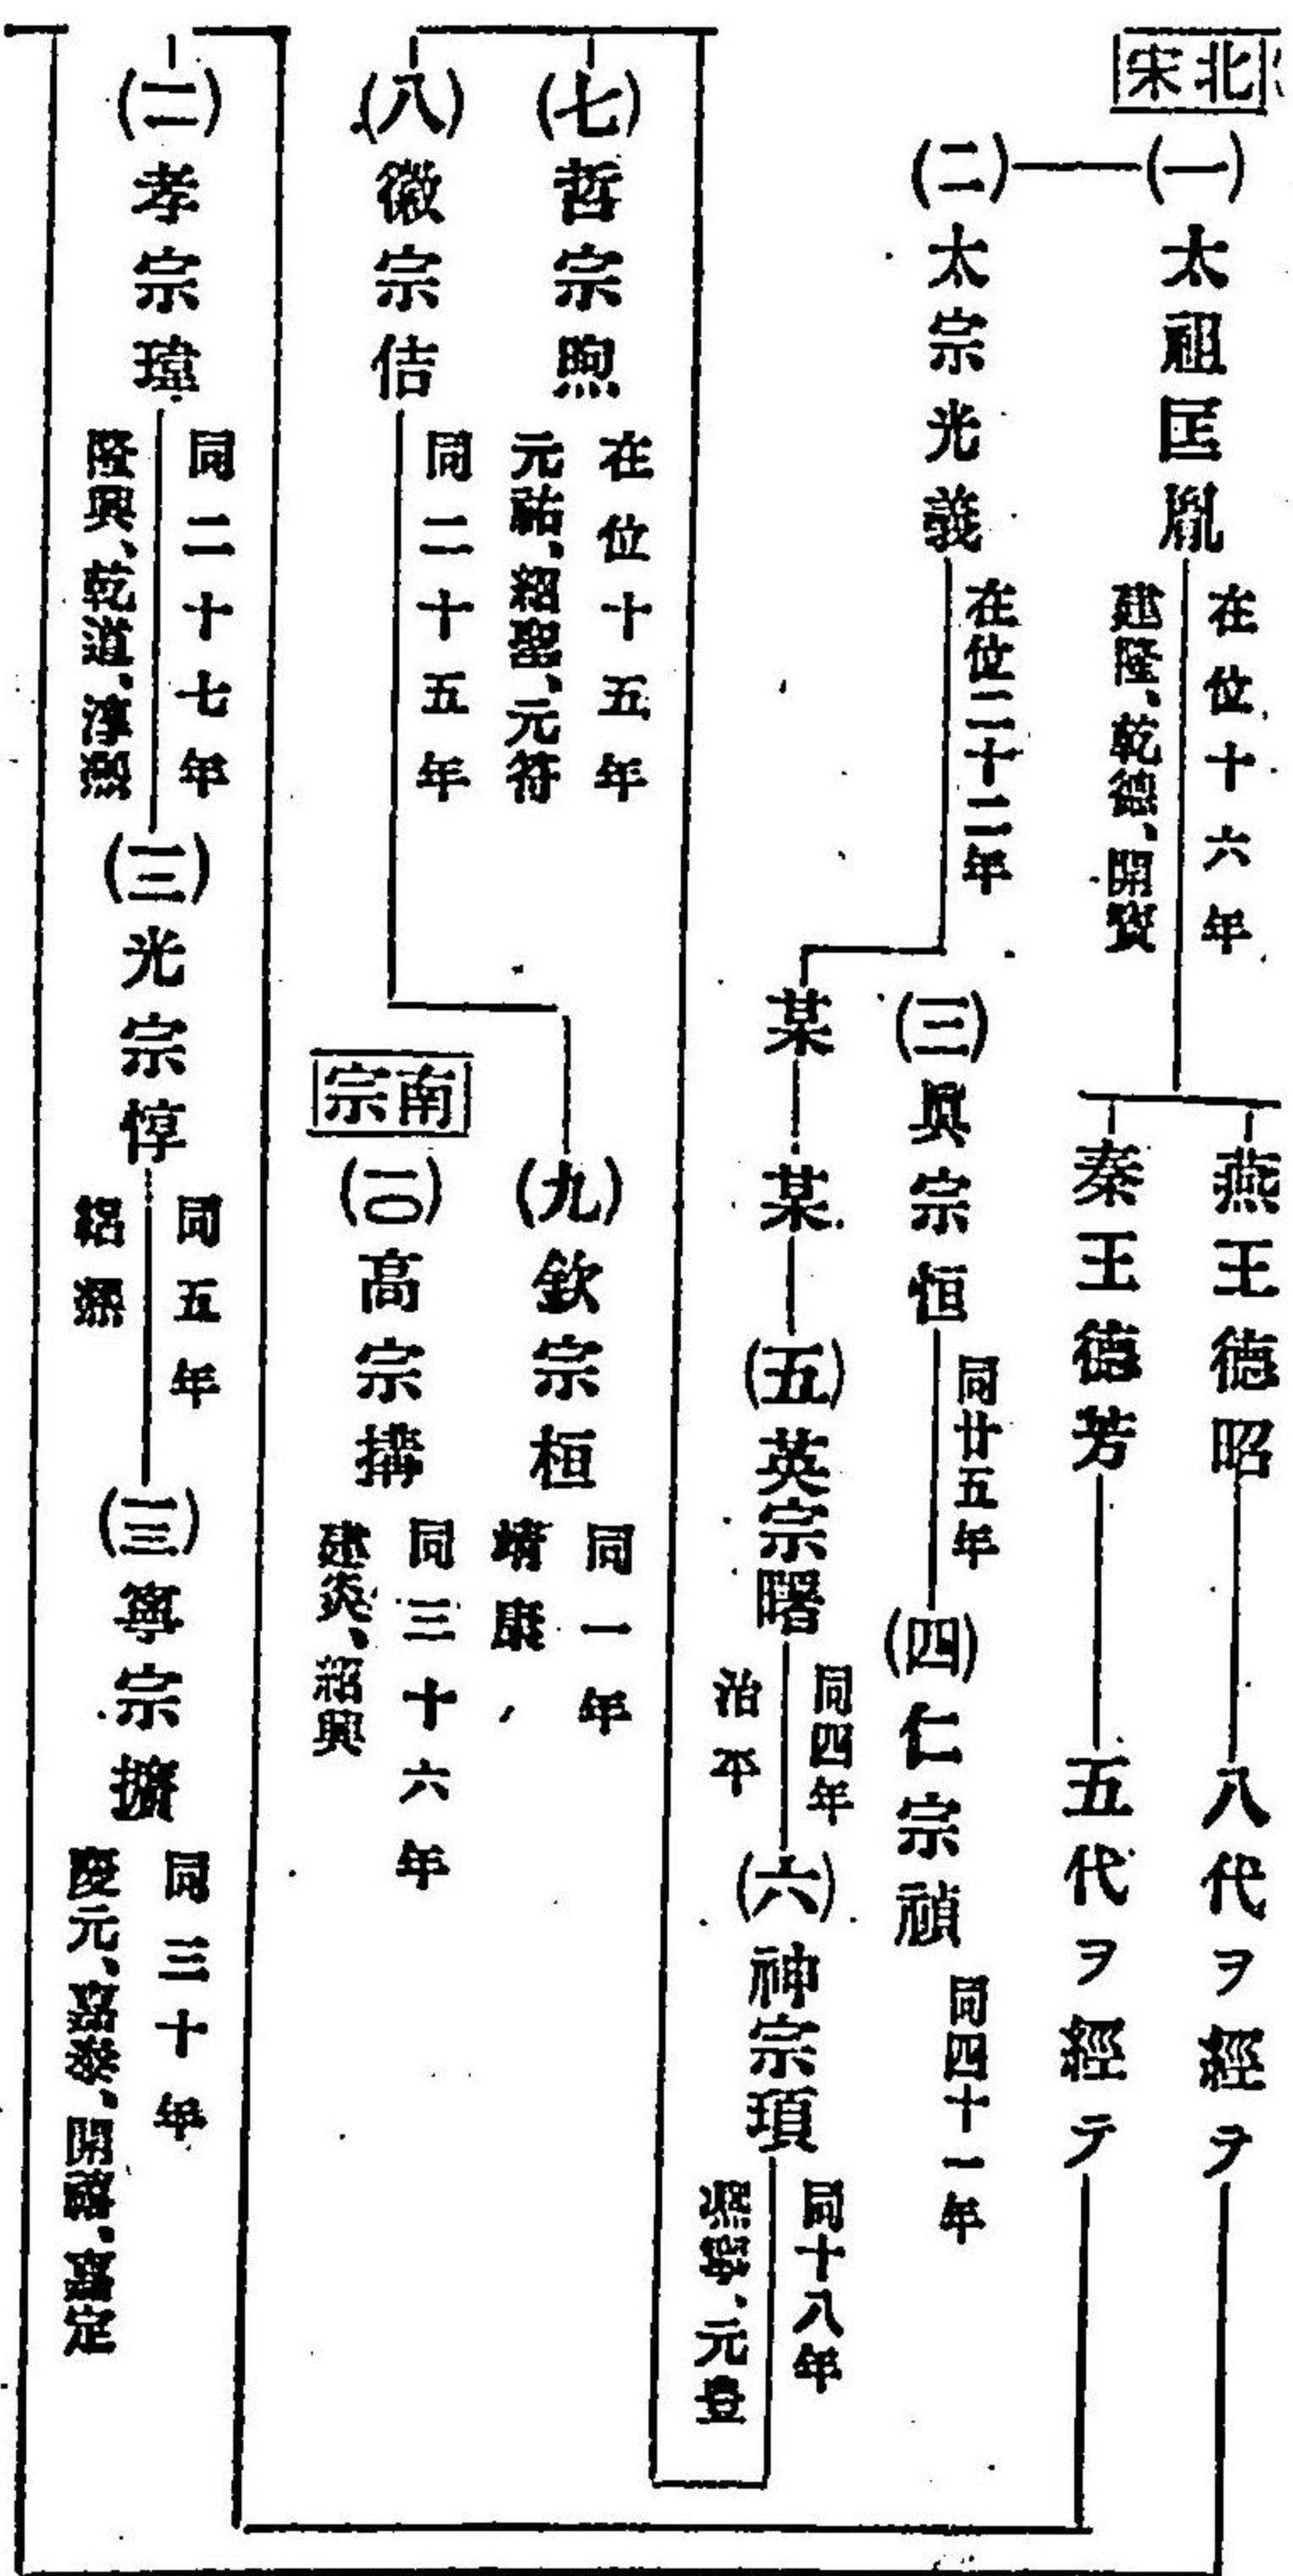 北宋
(一)太祖匡胤
在位十六年
建隆、乾德、開寶
燕王德昭
八代ヲ經テ
秦王德芳
五代ヲ經テ
(二)太宗光義
在位二十二年
(三)眞宗恒
同廿五年
(四)仁宗禎
同四十一年
某
某
(五)英宗曙
同四年
治平
(六)神宗頊
同十八年
熙寧、元豊
(七)哲宗煦
在位十五年
元祐、紹聖、元符
(八)徽宗佶
同二十五年
(九)欽宗桓
同一年
靖康
南宗
(一〇)高宗搆
同三十六年
建炎、紹興
(二)孝宗瑋
同二十七年
隆興、乾道、淳熙
(三)光宗惇
同五年
紹熙
(三)寧宗擴
同三十年
慶元、嘉泰、開禧、嘉定